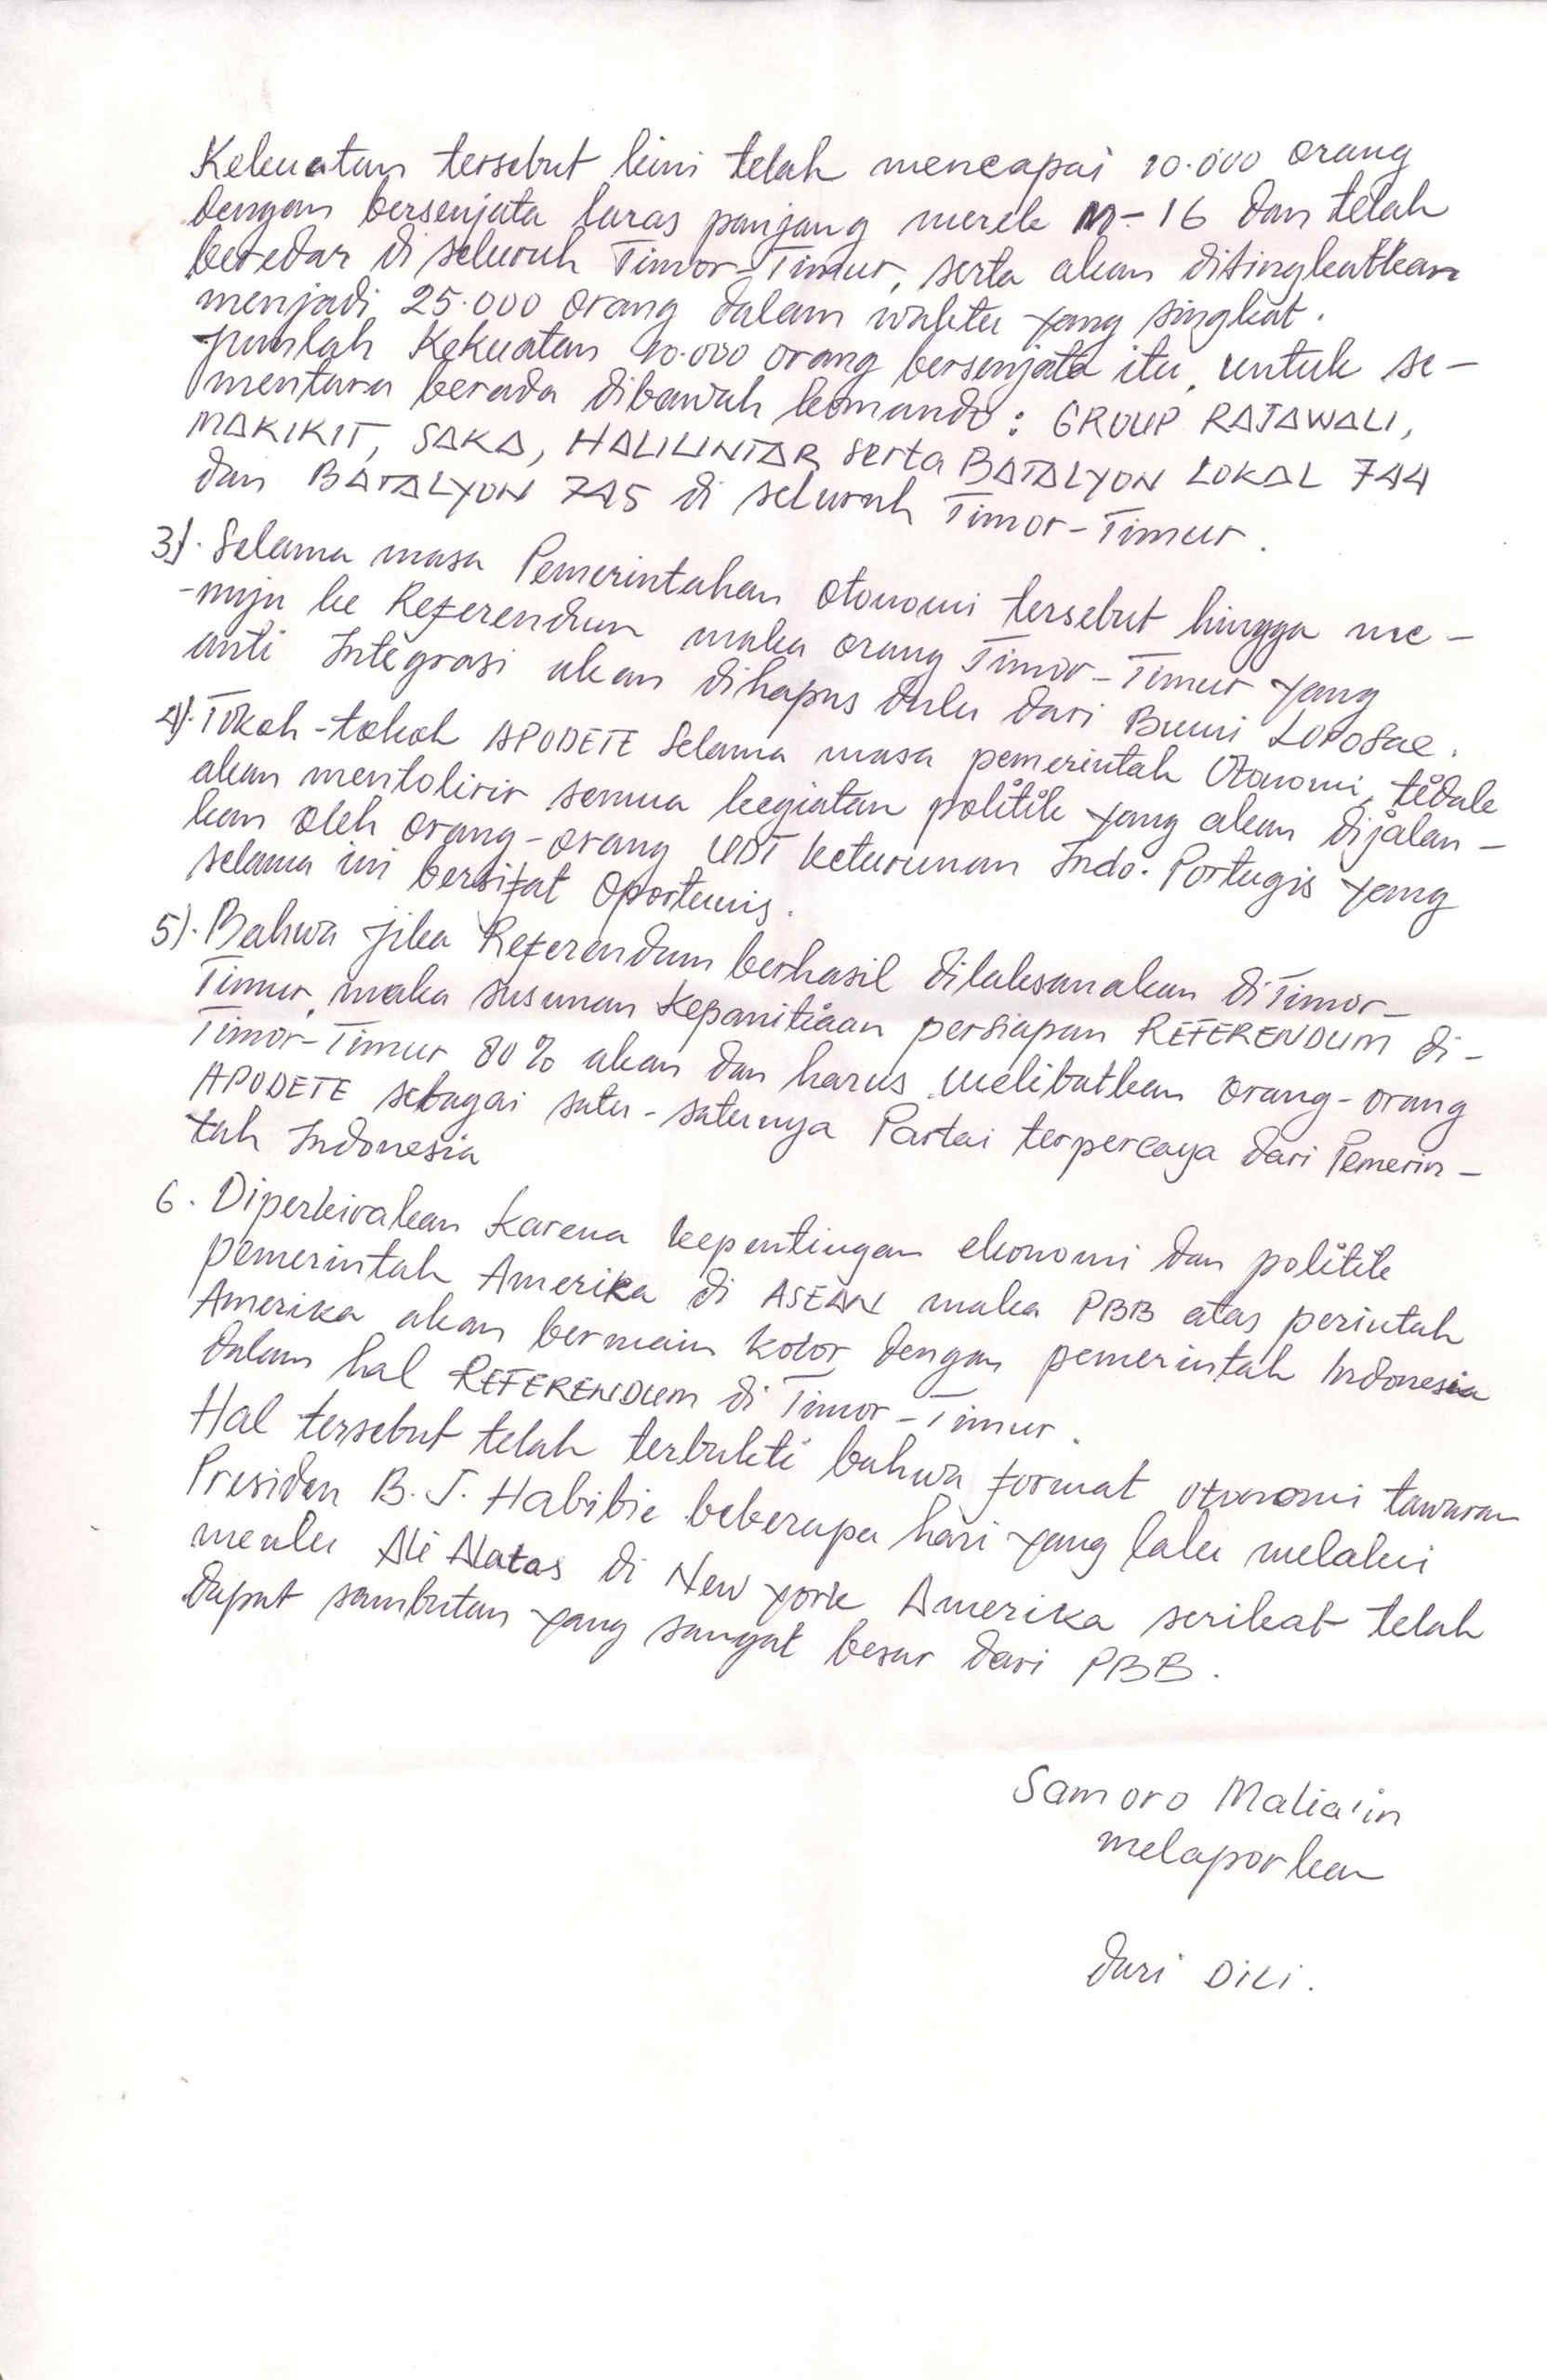 Kekuatan tersebut kini telah mencapai 10.000 orang
dengan bersenjata laras panjang merek M-16 dan telah
beredar di seluruh Timor-Timur, serta akan ditingkatkan
menjadi 25.000 orang dalam waktu yang singkat.
Jumlah Kekuatan 10.000 orang bersenjata itu, untuk se-
mentara berada dibawah komando: GROUP RAJAWALI,
MAKIKIT, SAKA, HALILINTAR serta BATALYON LOKAL 744
dan BATALYON 745 di seluruh Timor-Timur.
3). Selama masa Pemerintahan otonomi tersebut hingga me-
-nuju ke Referendum maka orang Timor-Timur yang
anti Integrasi akan dihapus dulu dari Bumi LoroSae.
4). Tokoh-tokoh APODETE Selama masa pemerintah Otonomi, tidak
akan mentolirir semua kegiatan politik yang akan dijalan-
kan oleh orang-orang UDT keturunan Indo. Portugis yang
selama ini bersifat Oportunis.
5). Bahwa jika Referendum berhasil dilaksanakan di Timor-
Timur, maka susunan Kepanitiaan persiapan REFERENDUM di-
Timor-Timur 80% akan dan harus melibatkan orang-orang
APODETE sebagai satu-satunya Partai terpercaya dari Pemerin-
tah Indonesia
6. Diperkirakan karena kepentingan ekonomi dan politik
pemerintah Amerika di ASEAN maka PBB atas perintah
Amerika akan bermain kotor dengan pemerintah Indonesia
dalam hal REFERENDUM di Timor-Timur.
Hal tersebut telah terbukti bahwa format otonomi tawaran
Presiden B.J. Habibie beberapa hari yang lalu melalui
menlu Ali Alatas di New York Amerika serikat telah
dapat sambutan yang sangat besar dari PBB.
Samoro Malia'in
melaporkan
dari DiLi.